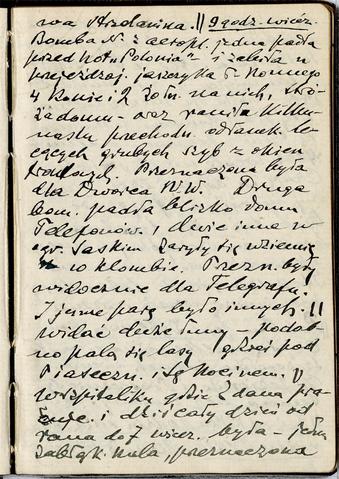 wa Strzelanina. || 9 godz. wiecz.
Bomba N. z aeropl. jedna padła
przed hot. „Polonia" – i zabiła w
przejeżdzaj. jaszczyku 6 konnego
4 konie i 2 żołn. na nich, stró-
ża domu – oraz raniła kilku-
nastu przechodn. odłamk. le-
cących grubych szyb z okien
frontowych. Przeznaczona była
dla Dworca W.W. Druga
bom. padła blizko domu
Telefonów. i dwie inne w
ogr. Saskim zaryły się w ziemię
w klombie. Przezn. były
widocznie dla Telegrafu.
I jeszcze parę było innych. ||
widać duże łuny – podob-
no palą się lasy gdzieś pod
Piaseczn. i Skocinem. ||
w szpitaliku gdzie Z dana pra-
cuje. i dziś cały dzień od
rana do 7 wiecz. była – jedna
zabłąk. kula, przeznaczona